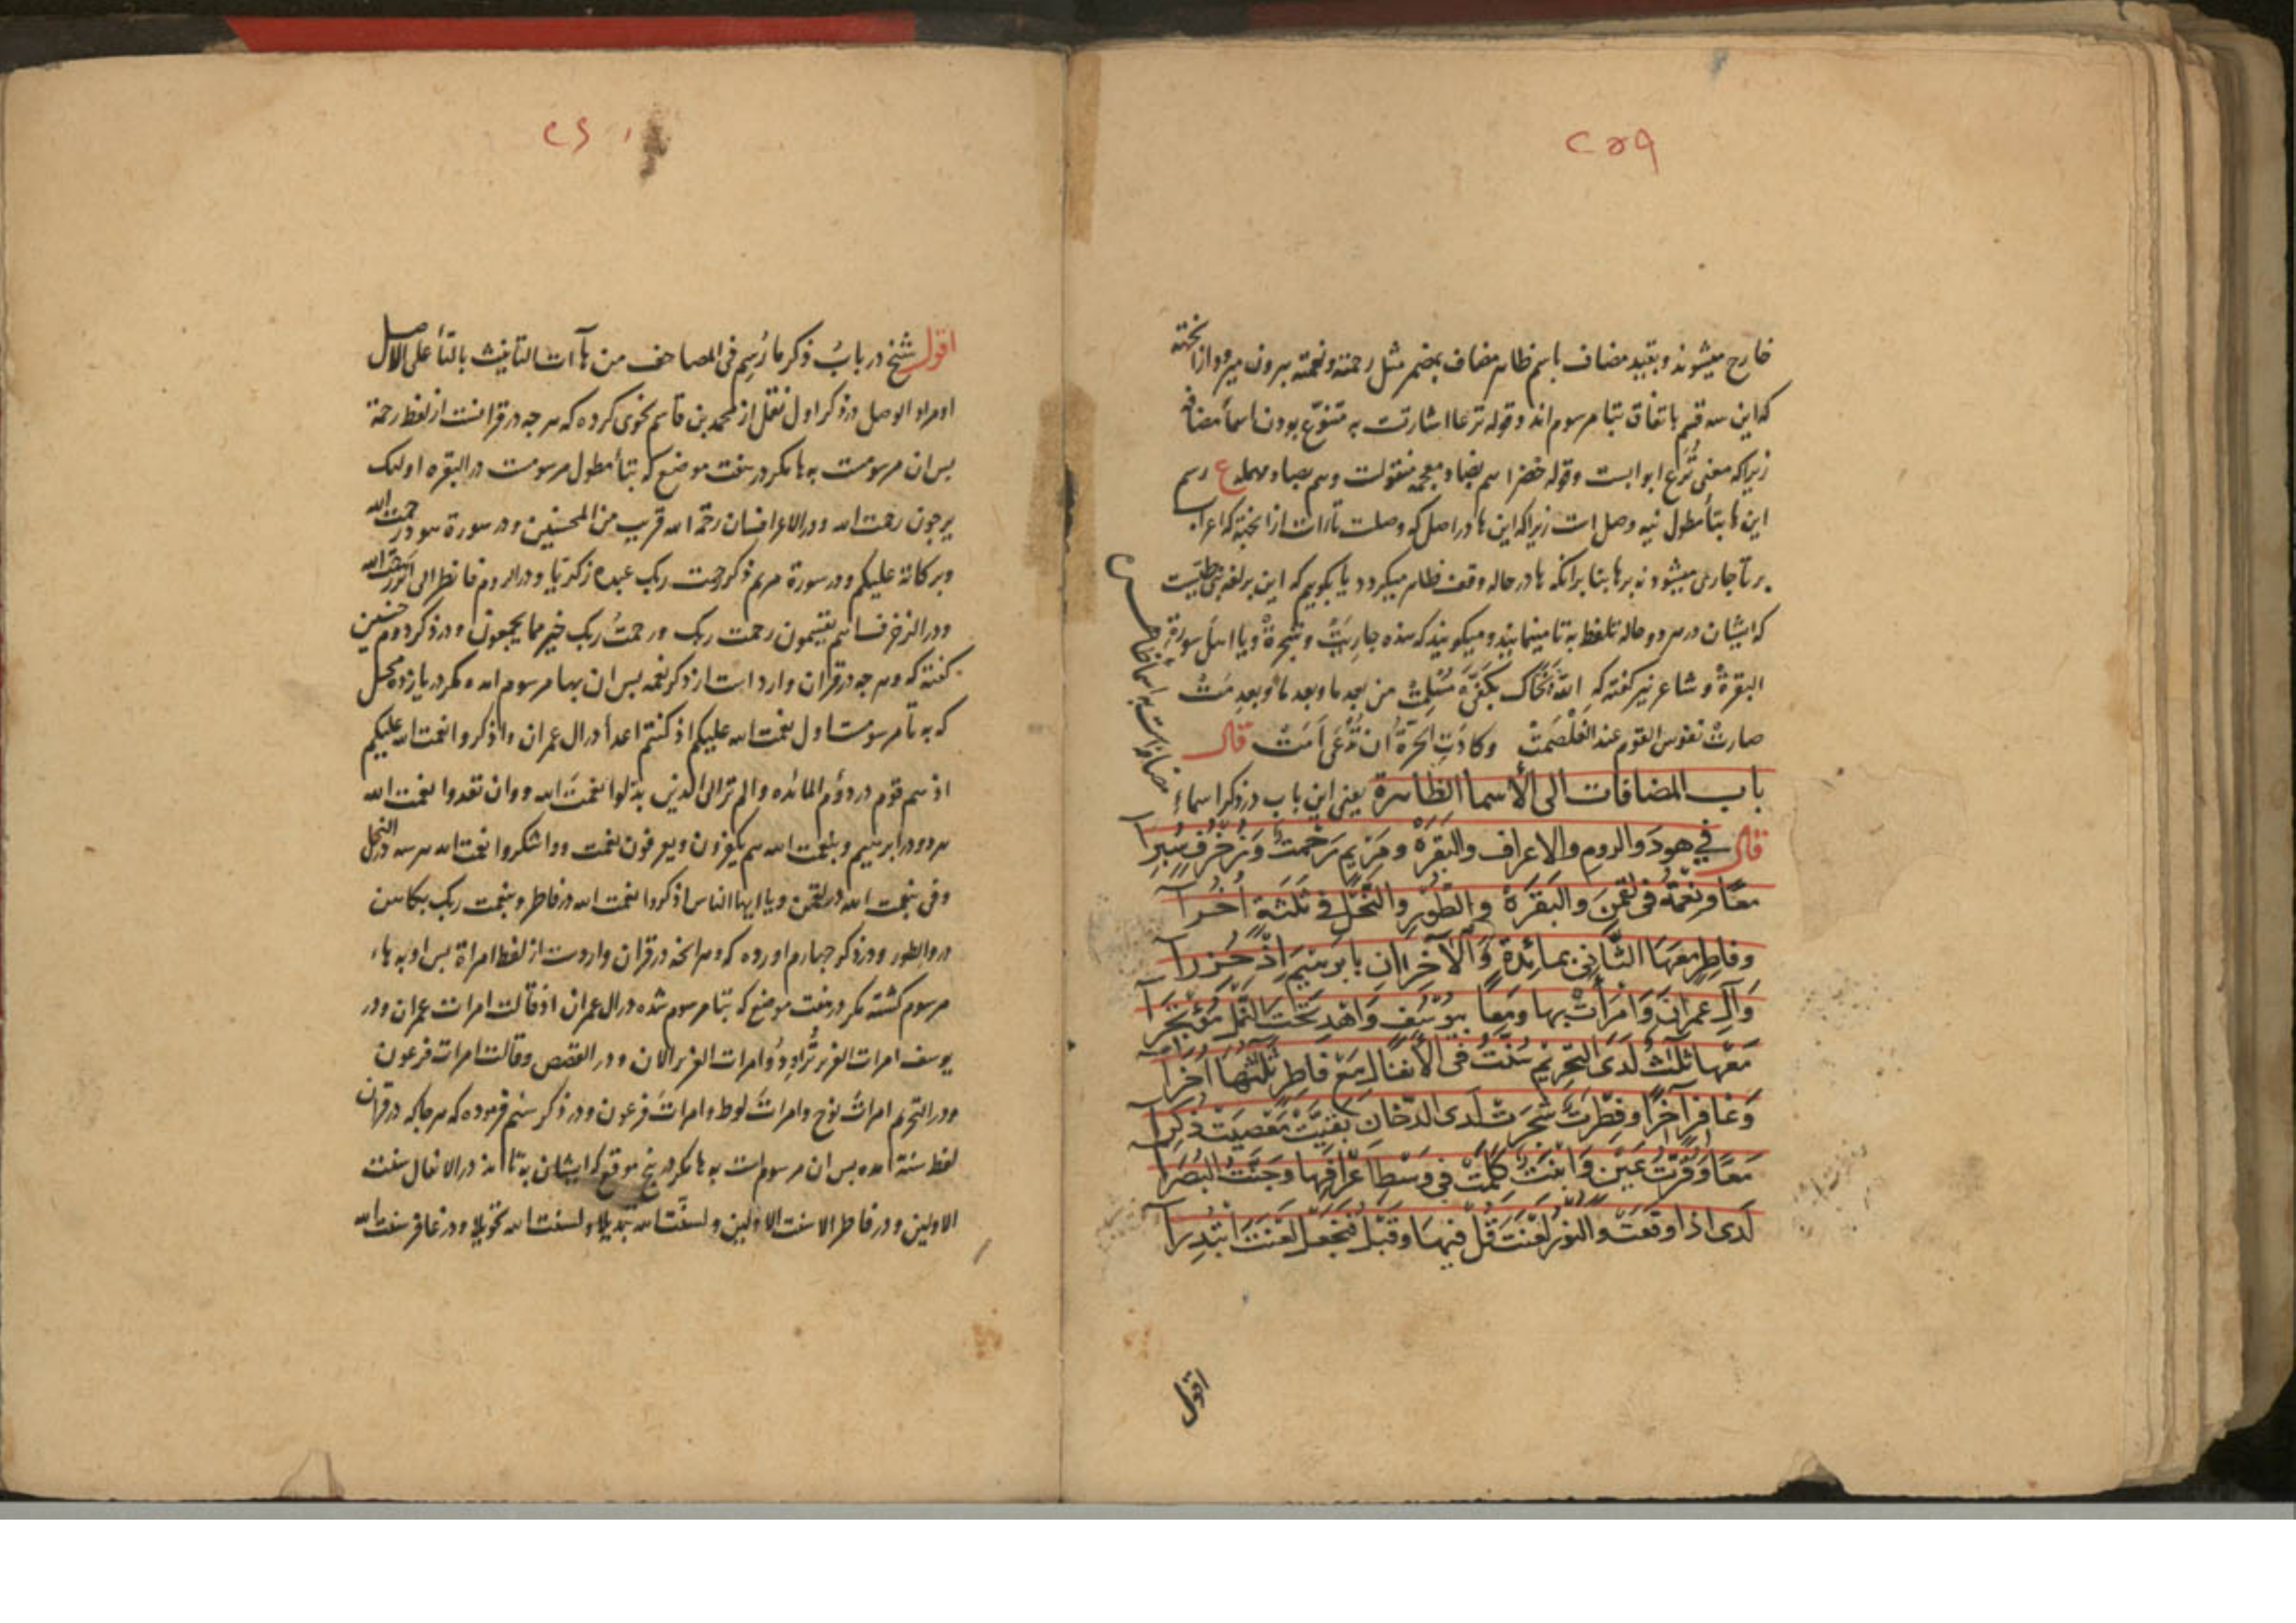 ۲۵۹
خارج میشوند و بقید مضاف باسم ظاهر مضاف بمضمر مثل رحمته و نعمته بیرون میرود ازانجهته
که این سه قسم باتفاق بتا مرسوم اند و قوله ترعا اشارتست به متنوّع بودن اسما مضافه
زیراکه معنی تُرَع ابوابست و قوله خضرا سم بضاد معجمه منقولست و هم بصاد مهمله ع رسم
این ها بتأ مطول نیه وصل است زیراکه این ها در اصل که وصلست تا است ازانجهته که اعراب
بر تا جاری میشود نه بر ها بنا برانکه ها در حاله وقف ظاهر میکردد یا بکویم که این بر لغه بنی طیّست
که ایشان در هر دو حاله تلفظ به تا مینمایند و میکویند که هذه جاریَتْ و شجرةْ و یا اهل سورة
البقرةْ و شاعر نیز کفته که اللّه نَجّاک بکفّی مَسْلِمتْ من بعد ما و بعد ما و بعد مَتْ
صارتْ نفوس القوم عند الغَلْصَمَتْ وکادَتِ الحرّةُ ان تُدْعَی اَمَتْ قال
باب المضافات الی الأسما الظاهرة یعنی این باب در ذکر اسماء
مضافه است به اسما ظاهره
قال فی هودَ والروم والاعراف والبَقَرَة ومَرْیَم رَحْمَتْ وَزُخْرُفٍ سُبِرَا
معًا ونعمَة فی لقمن والبَقَرَة والطُورِ والنَّحل فی ثلثةٍ اُخَرا
وفاطرٍ معَهَا الثّانی بمائدةٍ وَالآخِرانِ بابرهیمَ اِذْ حُزِرا
وَآلِ عمرانَ وَامْرَأتْ بها ومَعًا بیوسُفٍ وَاهْدِ تحتَ النَّمْلِ مُؤْتَجَرا
مَعْها ثلٰثٌ لَدَی التحریم سُنَّتْ فی الأنفالِ مَعْ فاطرٍ ثلثِها اُخَرا
وَغافرٍ آخِرًا وفِطْرَتْ شَجَرَتْ لَدی الدّخانِ بَقیَّتْ مَعْصیَتْ ذُکِرا
مَعًا وَقُرّتُ عَیْنٍ وَابْنَتْ کَلِمَتْ فی وَسْطِ اَعْرافِها وجَنّتُ البُصَرا
لَدی اذا وقعَتْ والنورِ لَعْنَتَ قُلْ فیها وقَبْلُ فَنَجْعَلْ لَعْنَتَ ابْتُدِرا
اقول
۲۶۰
اقول شیخ در بابُ ذکر ما رُسِم فی المصاحف من هاآت التأنیث بالتأ علی الاصل
او مراد الوصل در ذکر اول نقل از محمد بن قاسم نحوی کرده که هرچه در قرانست از لفظ رحمة
بس ان مرسومست به ها مکر در هفت موضع که بتأ مطول مرسومست در البقره اولیک
یرجون رحمت الله و در الاعراف ان رحمة الله قریب من المحسنین و در سورة هود رحمت الله
وبرکاتة علیکم و در سورة مریم ذکر رحمت ربک عبده زکریّا و در الروم فانظر الی اثر رحمت الله
و در الزخرف اهم یقسمون رحمت ربک و رحمتُ ربک خیر مما یجمعون و در ذکر دوم چنین
کفته که و هرچه در قران وارد است از ذکر نعمه بس ان بها مرسوم اند مکر در یازده محل
که به تا مرسومست اول نعمت الله علیکم اذ کنتم اعدأ در ال عمران واذکروا نعمت الله علیکم
اذ هم قوم در دوُم المائده والم تر الی الذین بدّلوا نعمتَ الله و وان تعدوا نعمت الله
هر دو در ابرهیم وبنعمت الله هم یکفرون ویعرفون نعمت و واشکروا نعمت الله هر سه در النحل
وفی بنعمت الله در لقمن ویا ایها الناس اذکروا نعمت الله در فاطر وبنعمت ربک بکاهن
در والطور و در ذکر چهارم اورده که و هرانچه در قران واردست از لفظ امراة بس او به هاء
مرسوم کشته مکر در هفت موضع که بتا مرسوم شده در ال عمران اذ قالت امرات عمران و در
یوسف امرات العزیز تُراوِدُ و امرات العزیز الان و در القصص وقالت امرات فرعون
و در التحریم امراتَ نوح وامراتَ لوط وامراتَ فرعون و در ذکر سیم فرموده که هرجا که در قران
لفظ سنة امده بس ان مرسوم است به ها مکر در پنج موقع که ایشان به تا اند در الانفال سنت
الاولین و در فاطر الا سنت الاولین ولسنّت الله تبدیلا ولسنت الله تحویلا و در غافر سنت الله